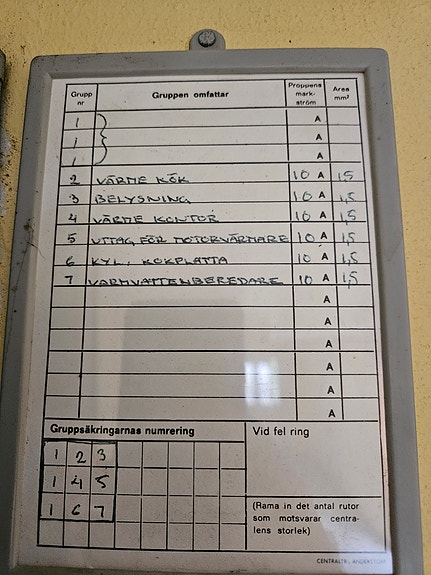 Grupp nr Gruppen omfattar Proppens mark- ström Area mm²
1 A
1 A
1 A
2 VÄRME KÖK 10 A 1,5
3 BELYSNING 10 A 1,5
4 VÄRME KONTOR 10 A 1,5
5 UTTAG FÖR MOTORVÄRMARE 10 A 1,5
6 KYL. KOKPLATTA 10 A 1,5
7 VARMVATTENBEREDARE 10 A 1,5
A
A
A
A
A
A
Gruppsäkringarnas numrering
1 2 3
1 4 5
1 6 7
Vid fel ring
(Rama in det antal rutor
som motsvarar centra-
lens storlek)